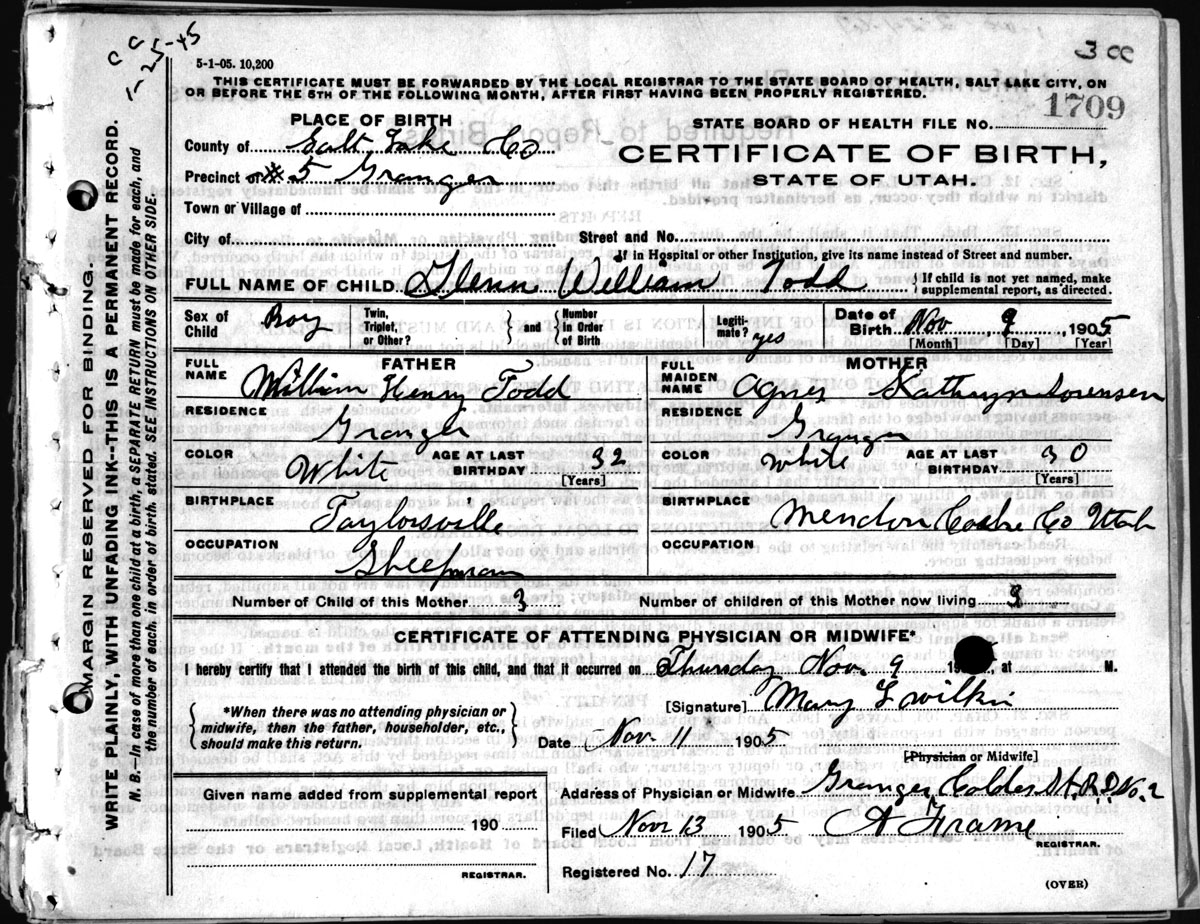 c c
1-25-45
3 cc
5-1-05. 10,200
THIS CERTIFICATE MUST BE FORWARDED BY THE LOCAL REGISTRAR TO THE STATE BOARD OF HEALTH, SALT LAKE CITY, ON
OR BEFORE THE 5TH OF THE FOLLOWING MONTH, AFTER FIRST HAVING BEEN PROPERLY REGISTERED.
PLACE OF BIRTH
STATE BOARD OF HEALTH FILE NO. 1709
County of Salt Lake Co
CERTIFICATE OF BIRTH,
STATE OF UTAH.
Precinct of #5 Granger
Town or Village of
City of
Street and No.
If in Hospital or other Institution, give its name instead of Street and number.
FULL NAME OF CHILD Glenn William Todd { If child is not yet named, make supplemental report, as directed.
Sex of Child Boy Twin, Triplet, or Other? } and { Number in Order of Birth Legitimate? yes Date of Birth Nov 9, 1905
[Month] [Day] [Year]
FATHER
FULL NAME William Henry Todd
RESIDENCE Granger
COLOR White AGE AT LAST BIRTHDAY 32
[Years]
BIRTHPLACE Taylorsville
OCCUPATION Sheepman
MOTHER
FULL MAIDEN NAME Agnes Kathryn Sorensen
RESIDENCE Granger
COLOR White AGE AT LAST BIRTHDAY 30
[Years]
BIRTHPLACE Mendon Cache Co Utah
OCCUPATION
Number of Child of this Mother 3 Number of children of this Mother now living 3
CERTIFICATE OF ATTENDING PHYSICIAN OR MIDWIFE*
I hereby certify that I attended the birth of this child, and that it occurred on Thursday Nov. 9 190, at M.
{ *When there was no attending physician or
midwife, then the father, householder, etc.,
should make this return. }
[Signature] Mary L Wilkin
Date Nov. 11 1905
[Physician or Midwife]
Given name added from supplemental report
190
REGISTRAR.
Address of Physician or Midwife Granger, Calder St. R.D. No. 2
Filed Nov. 13 1905 A Frame
REGISTRAR.
Registered No. 17
(OVER)
MARGIN RESERVED FOR BINDING.
WRITE PLAINLY, WITH UNFADING INK--THIS IS A PERMANENT RECORD.
N. B.—In case of more than one child at a birth, a SEPARATE RETURN must be made for each, and
the number of each, in order of birth, stated. SEE INSTRUCTIONS ON OTHER SIDE.